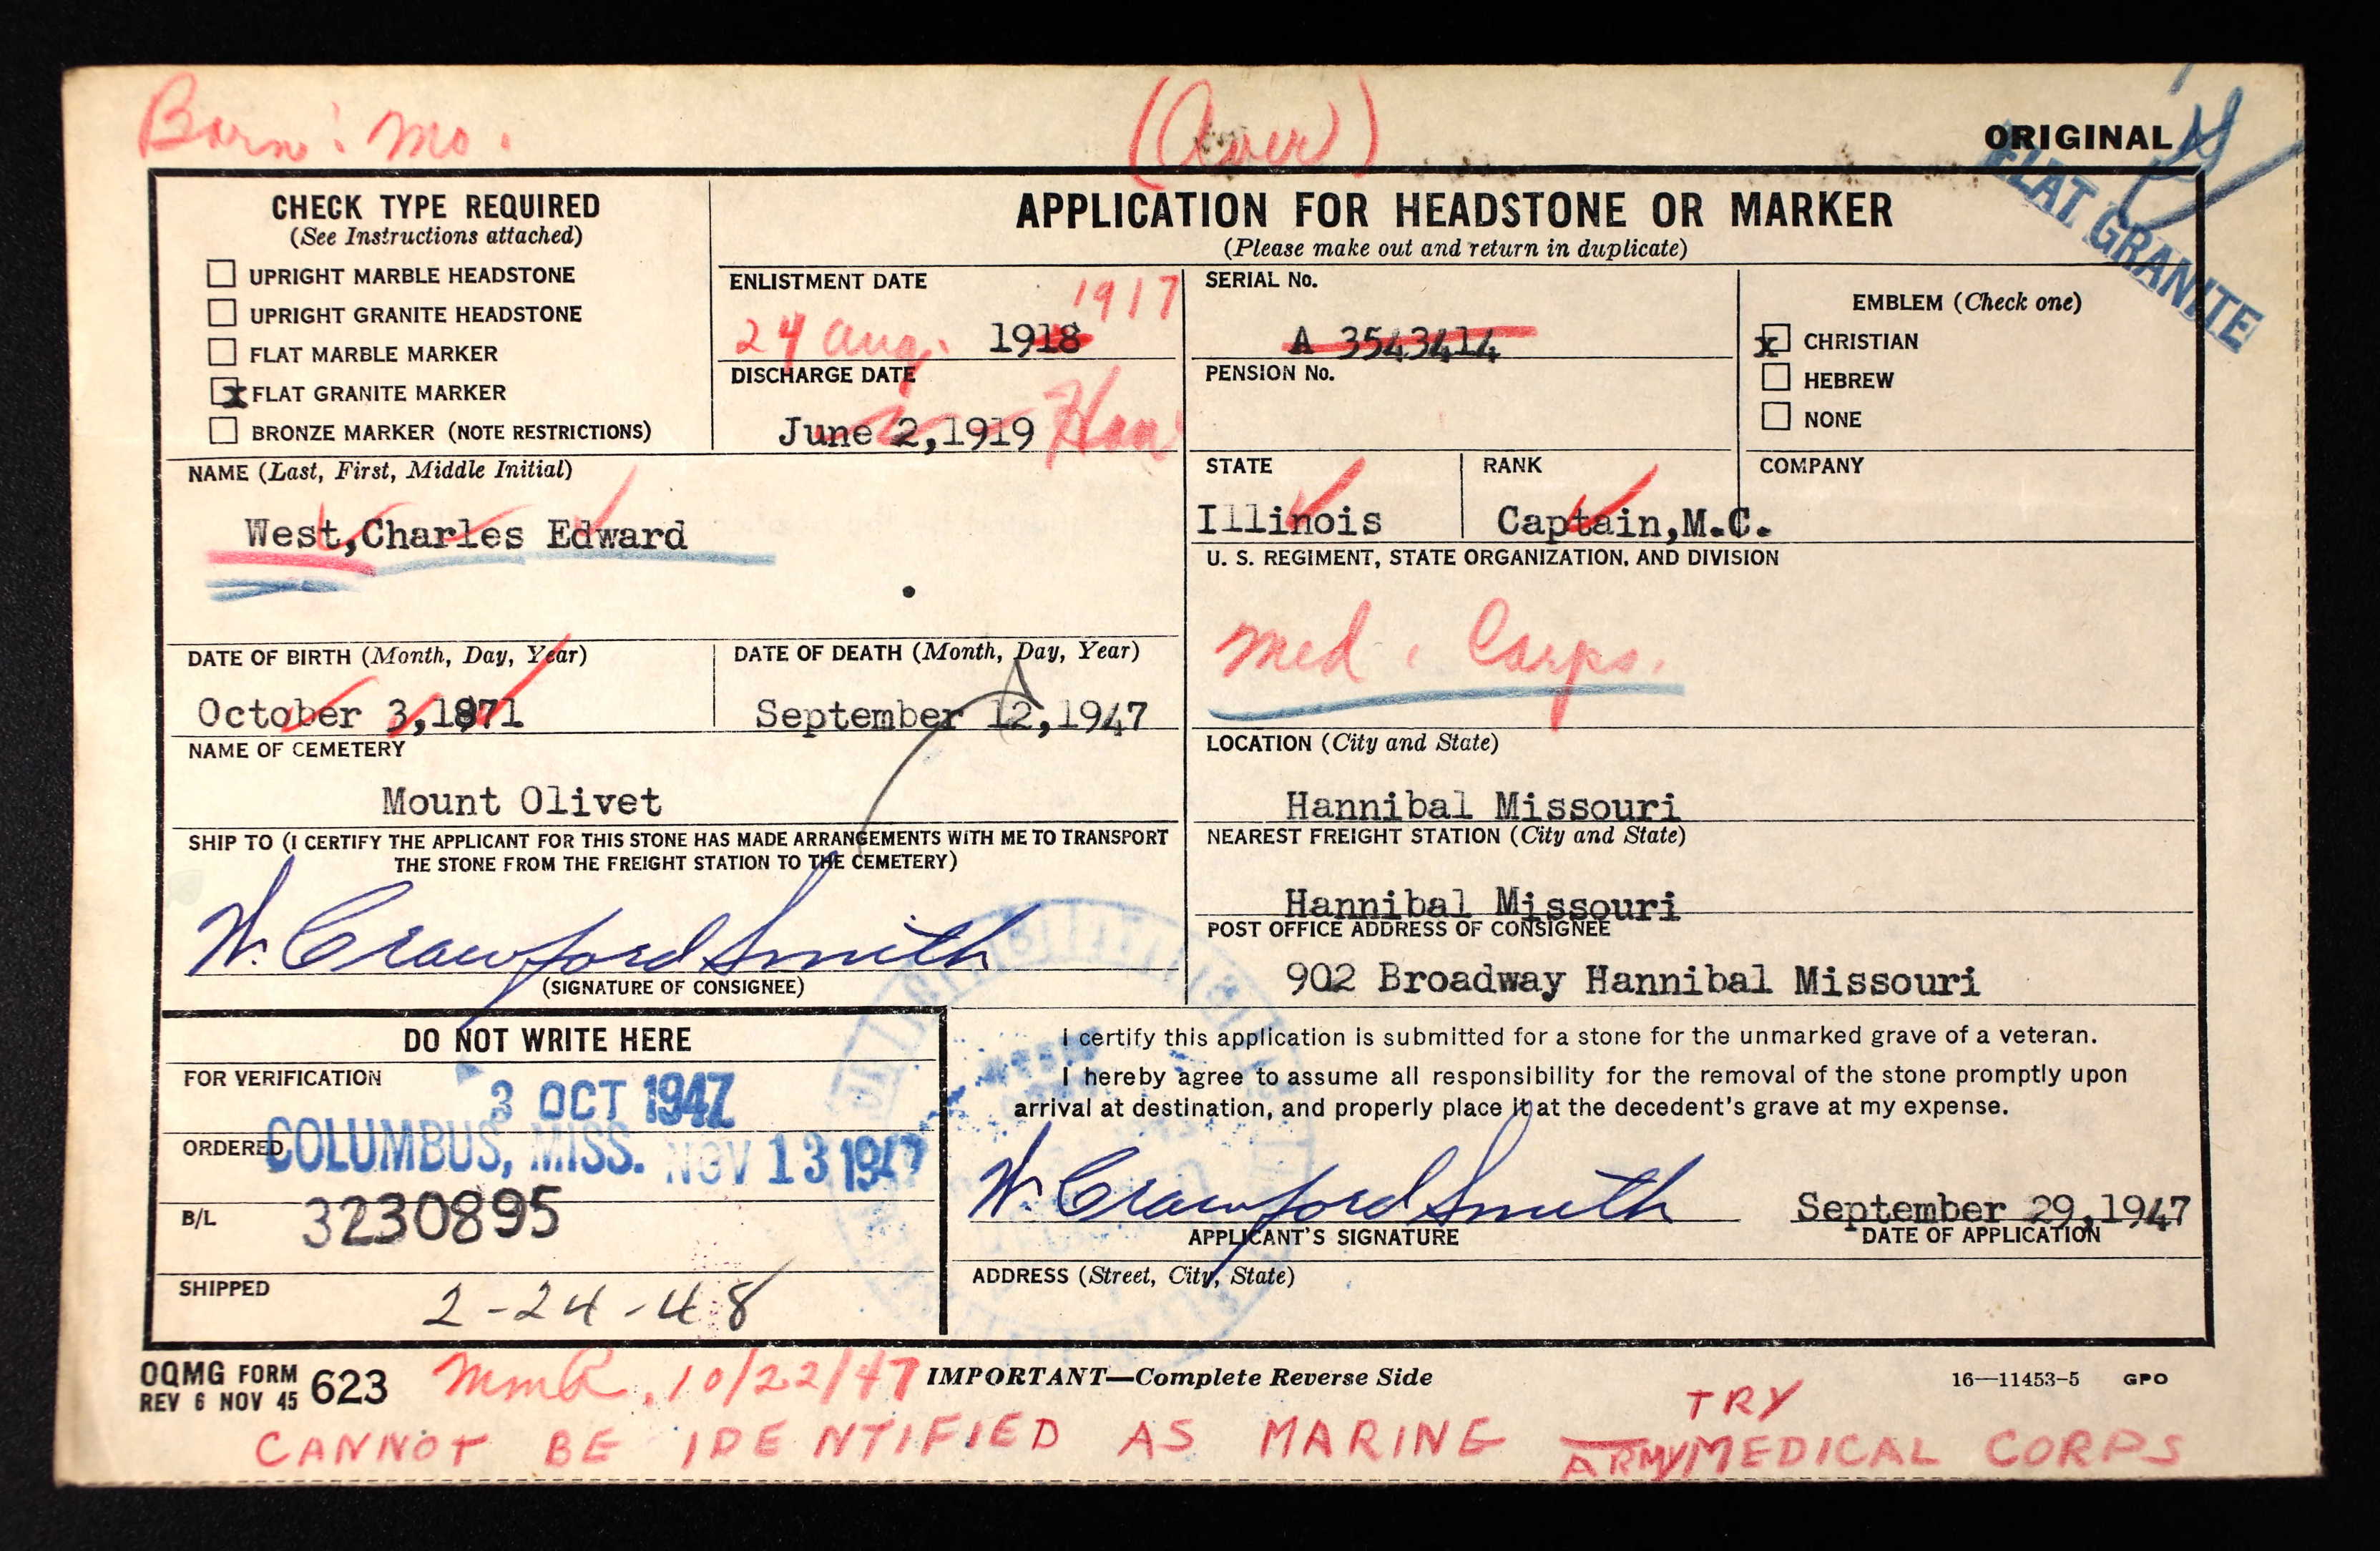 Born: Mo.
(Over)
ORIGINAL
FLAT GRANITE
CHECK TYPE REQUIRED
(See Instructions attached)
UPRIGHT MARBLE HEADSTONE
UPRIGHT GRANITE HEADSTONE
FLAT MARBLE MARKER
x FLAT GRANITE MARKER
BRONZE MARKER (NOTE RESTRICTIONS)
APPLICATION FOR HEADSTONE OR MARKER
(Please make out and return in duplicate)
ENLISTMENT DATE
24 Aug. 1918 1917
DISCHARGE DATE
June 2,1919 Hon
SERIAL No.
A 3543414
PENSION No.
EMBLEM (Check one)
x CHRISTIAN
HEBREW
NONE
NAME (Last, First, Middle Initial)
West,Charles Edward
STATE
Illinois
RANK
Captain,M.C.
COMPANY
U. S. REGIMENT, STATE ORGANIZATION, AND DIVISION
Med. Corps.
DATE OF BIRTH (Month, Day, Year)
October 3,1871
DATE OF DEATH (Month, Day, Year)
September 12,1947
NAME OF CEMETERY
Mount Olivet
LOCATION (City and State)
Hannibal Missouri
SHIP TO (I CERTIFY THE APPLICANT FOR THIS STONE HAS MADE ARRANGEMENTS WITH ME TO TRANSPORT
THE STONE FROM THE FREIGHT STATION TO THE CEMETERY)
W. Crawford Smith
(SIGNATURE OF CONSIGNEE)
NEAREST FREIGHT STATION (City and State)
Hannibal Missouri
POST OFFICE ADDRESS OF CONSIGNEE
902 Broadway Hannibal Missouri
DO NOT WRITE HERE
FOR VERIFICATION
3 OCT 1947
ORDERED
COLUMBUS, MISS. NOV 13 1947
B/L
3230895
SHIPPED
2-24-48
I certify this application is submitted for a stone for the unmarked grave of a veteran.
I hereby agree to assume all responsibility for the removal of the stone promptly upon
arrival at destination, and properly place it at the decedent's grave at my expense.
W. Crawford Smith
APPLICANT'S SIGNATURE
September 29,1947
DATE OF APPLICATION
ADDRESS (Street, City, State)
OQMG FORM
REV 6 NOV 45 623
10/22/47
IMPORTANT—Complete Reverse Side
16—11453-5 GPO
CANNOT BE IDENTIFIED AS MARINE TRY
ARMY MEDICAL CORPS